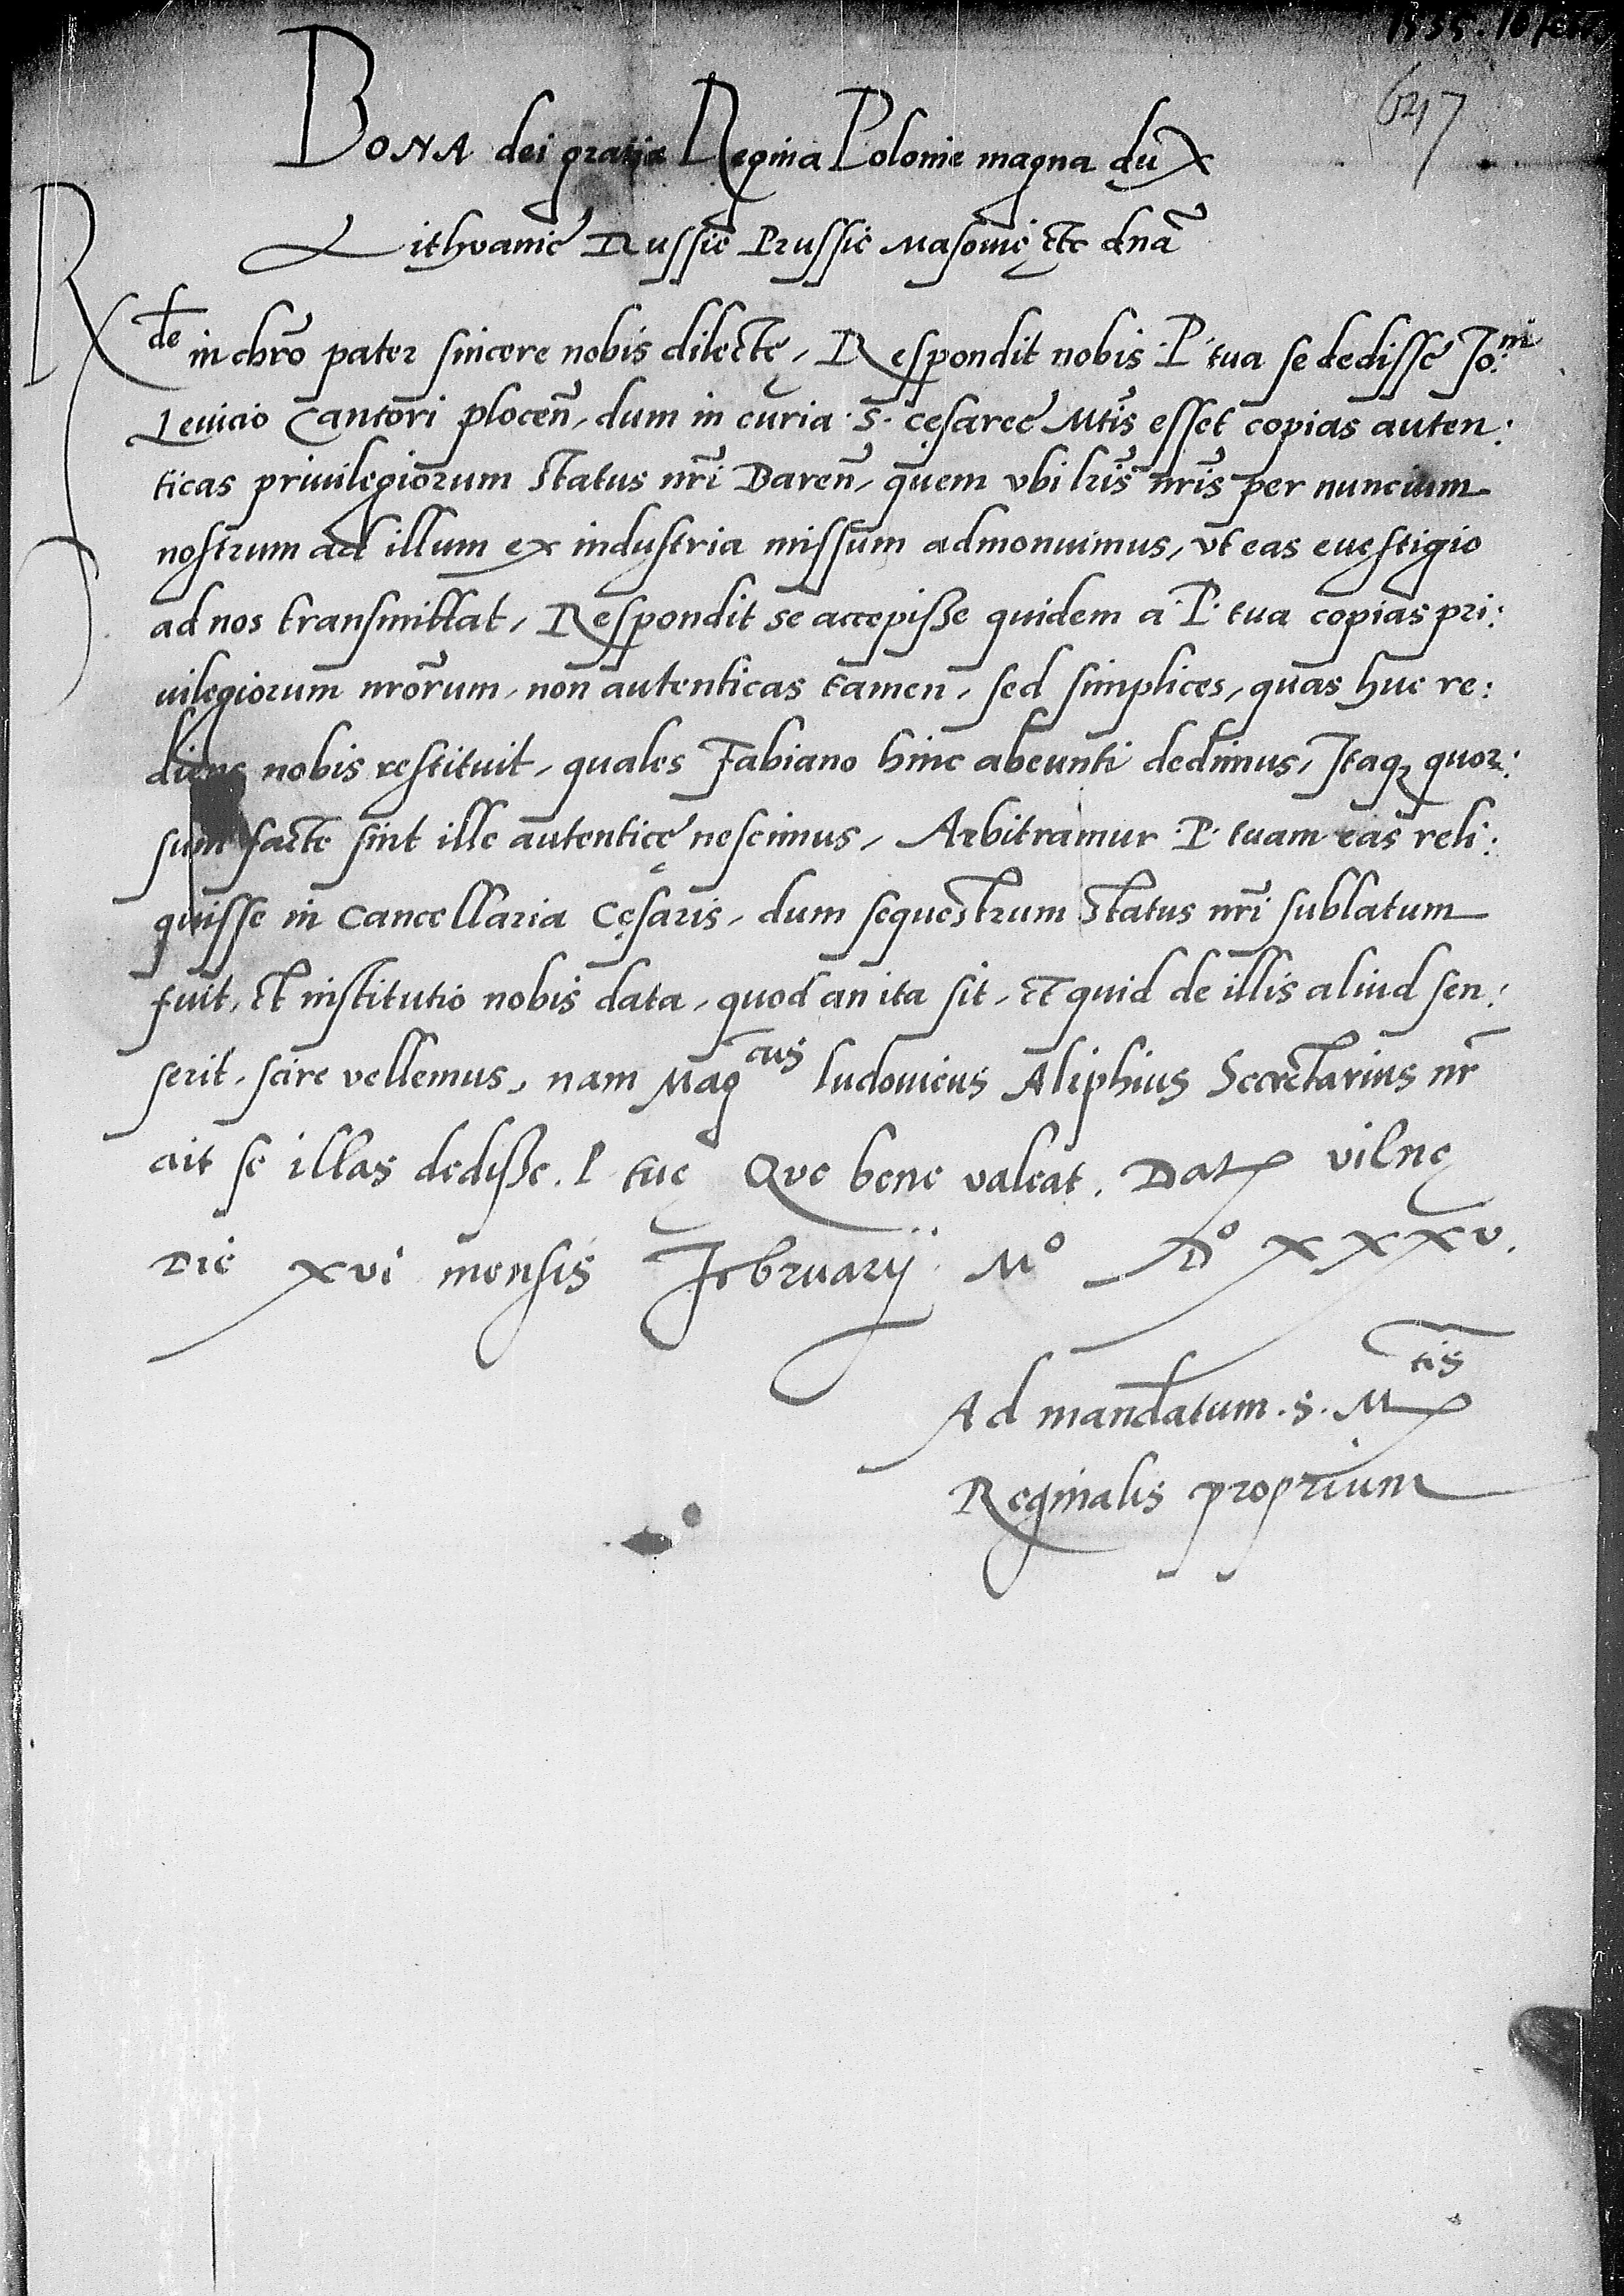 1535. 16 febr
647
BONA dei gratia Regina Polonie magna dux
Lithvanie Russie Prussie Masovie etc dna
Rde in chro pater sincere nobis dilecte, Respondit nobis P. tua se dedisse Io.ni
Levicio Cantori plocen, dum in curia .S. Cesaree Mtis esset copias auten:
ticas privilegiorum status nri Baren, quem vbi lris nris per nuncium
nostrum ad illum ex industria missum admonuimus, vt eas evestigio
ad nos transmittat, Respondit se accepisse quidem a .P. tua copias pri:
uilegiorum nrorum, non autenticas tamen, sed simplices, quas huc re:
diens nobis restituit, quales Fabiano hinc abeunti dedimus, Itaq quor:
sum facte sint ille autentice nescimus, Arbitramur .P. tuam eas reli:
quisse in Cancellaria Cesaris, dum sequestrum status nri sublatum
fuit, et institutio nobis data, quod an ita sit, et quid de illis aliud sen:
serit, scire vellemus, nam Magcus ludovicus Aliphius Secretarius nr
ait se illas dedisse .P. tue Que bene valeat. Dat vilne
Die xvi mensis Februarij Mo Do xxxv.
Ad mandatum .S. Mtis
Reginalis proprium